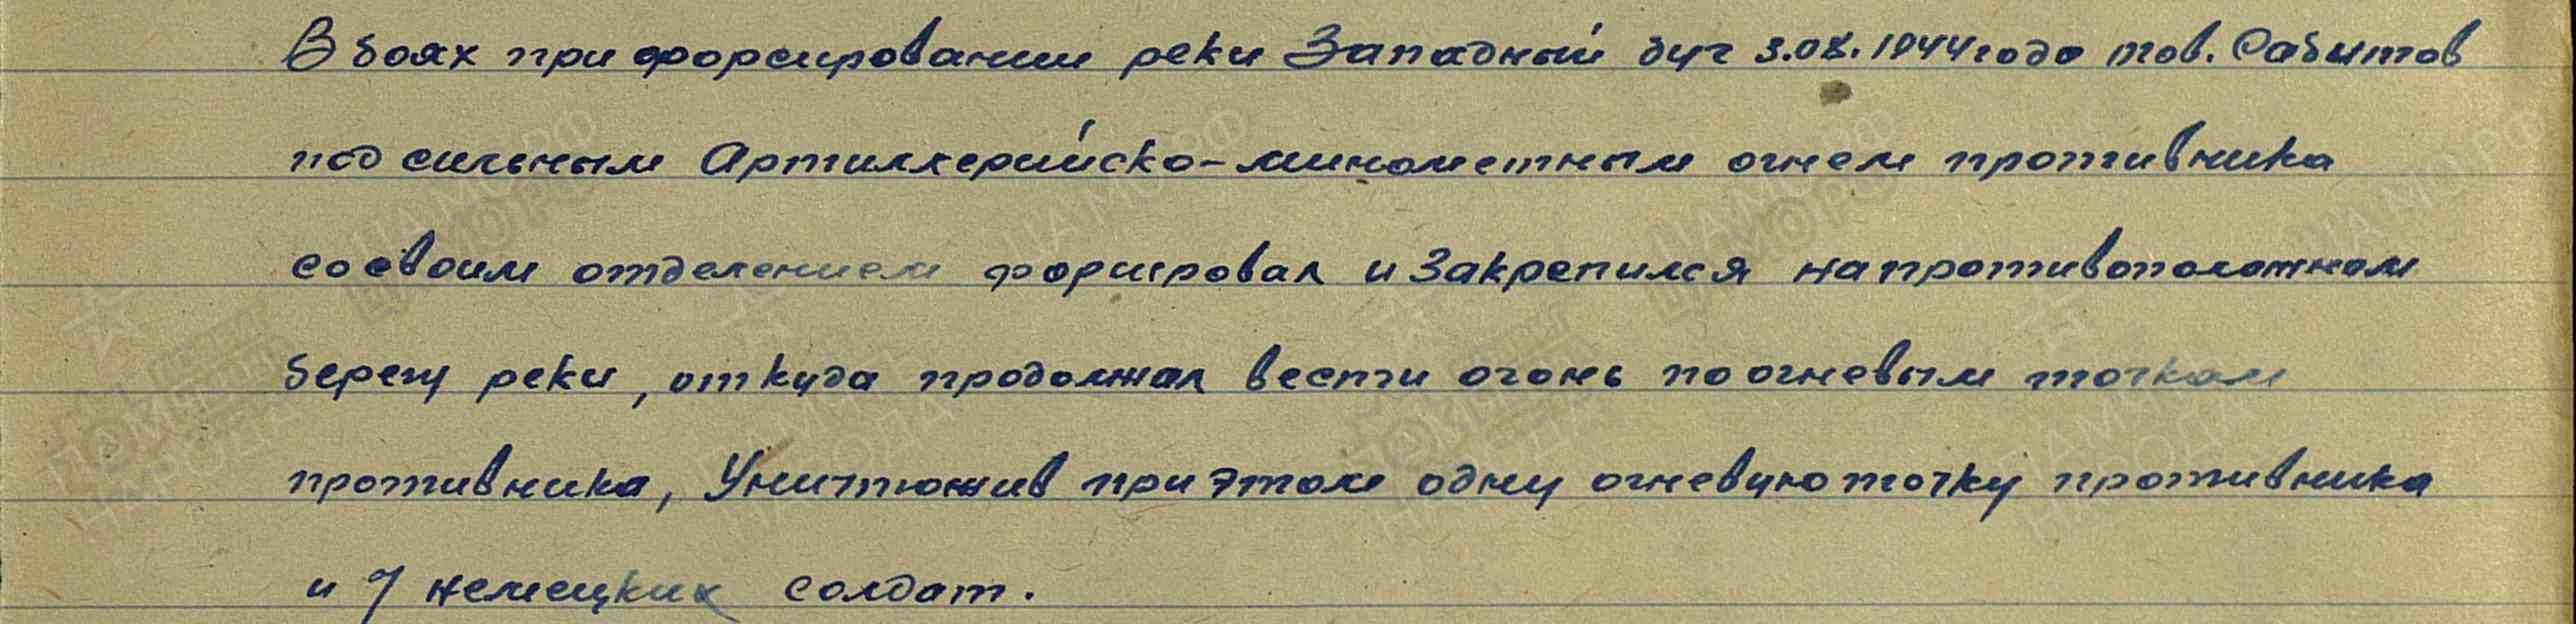 В боях при форсировании реки Западный буг 3.08.1944 года тов. Сабитов
под сильным Артиллерийско-минометным огнем противника
со своим отделением форсировал и Закрепился на противоположном
берегу реки, откуда продолжал вести огонь по огневым точкам
противника, Уничтожив при этом одну огневую точку противника
и 7 немецких солдат.